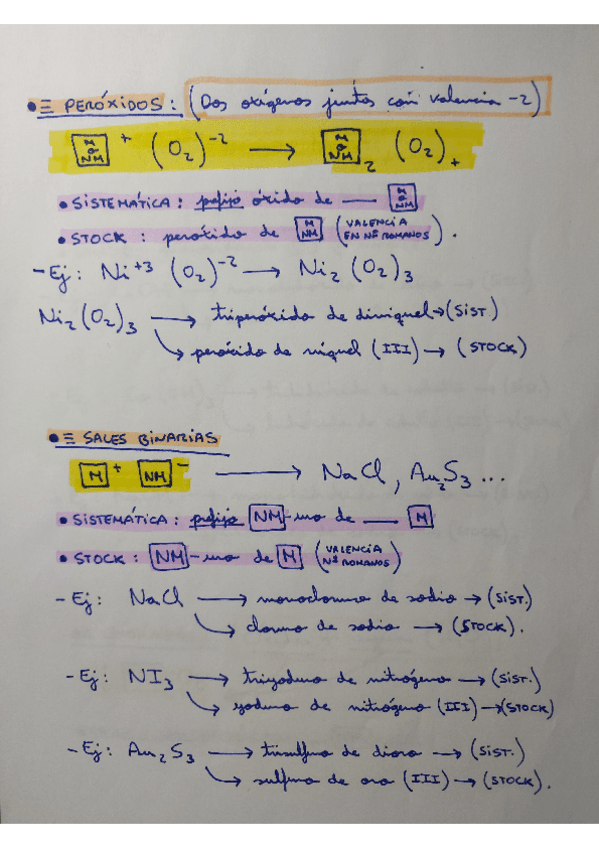 • Ξ PERÓXIDOS: (Dos oxígenos juntos con valencia -2)
M o NM ⁺ (O₂)⁻² → M o NM ₂ (O₂)₊
• SISTEMÁTICA: prefijo óxido de — M o NM
• STOCK: peróxido de M NM (VALENCIA EN Nº ROMANOS).
- Ej: Ni⁺³ (O₂)⁻² → Ni₂(O₂)₃
Ni₂(O₂)₃ → triperóxido de diníquel → (SIST.)
↳ peróxido de níquel (III) → (STOCK)
• Ξ SALES BINARIAS
M ⁺ NM ⁻ → NaCl, Au₂S₃ ...
• SISTEMÁTICA: prefijo NM-uro de — M
• STOCK: NM-uro de M (VALENCIA Nº ROMANOS)
- Ej: NaCl → monocloruro de sodio → (SIST.)
↳ cloruro de sodio → (STOCK).
- Ej: NI₃ → triyoduro de nitrógeno → (SIST.)
↳ yoduro de nitrógeno (III) → (STOCK)
- Ej: Au₂S₃ → trisulfuro de dioro → (SIST.)
↳ sulfuro de oro (III) → (STOCK).